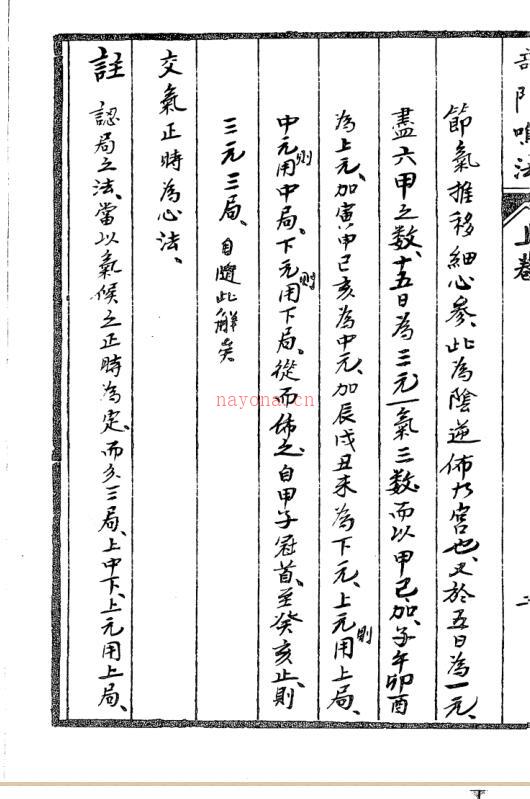 鳴法
上卷
二
節氣推移細心參、此為陰逆佈九宮也、又於五日為一元、
盡六甲之数、十五日為三元、一氣三数、而以甲己加、子午卯酉
為上元、加寅申巳亥為中元、加辰戌丑未為下元、上元則用上局、
中元則用中局、下元則用下局、從而佈之、自甲子冠首、至癸亥止、則
三元三局、自隨此解矣
交氣正時為心法、
註 認局之法、當以氣候之正時為定、而分三局、上中下、上元用上局、
nayona.cn